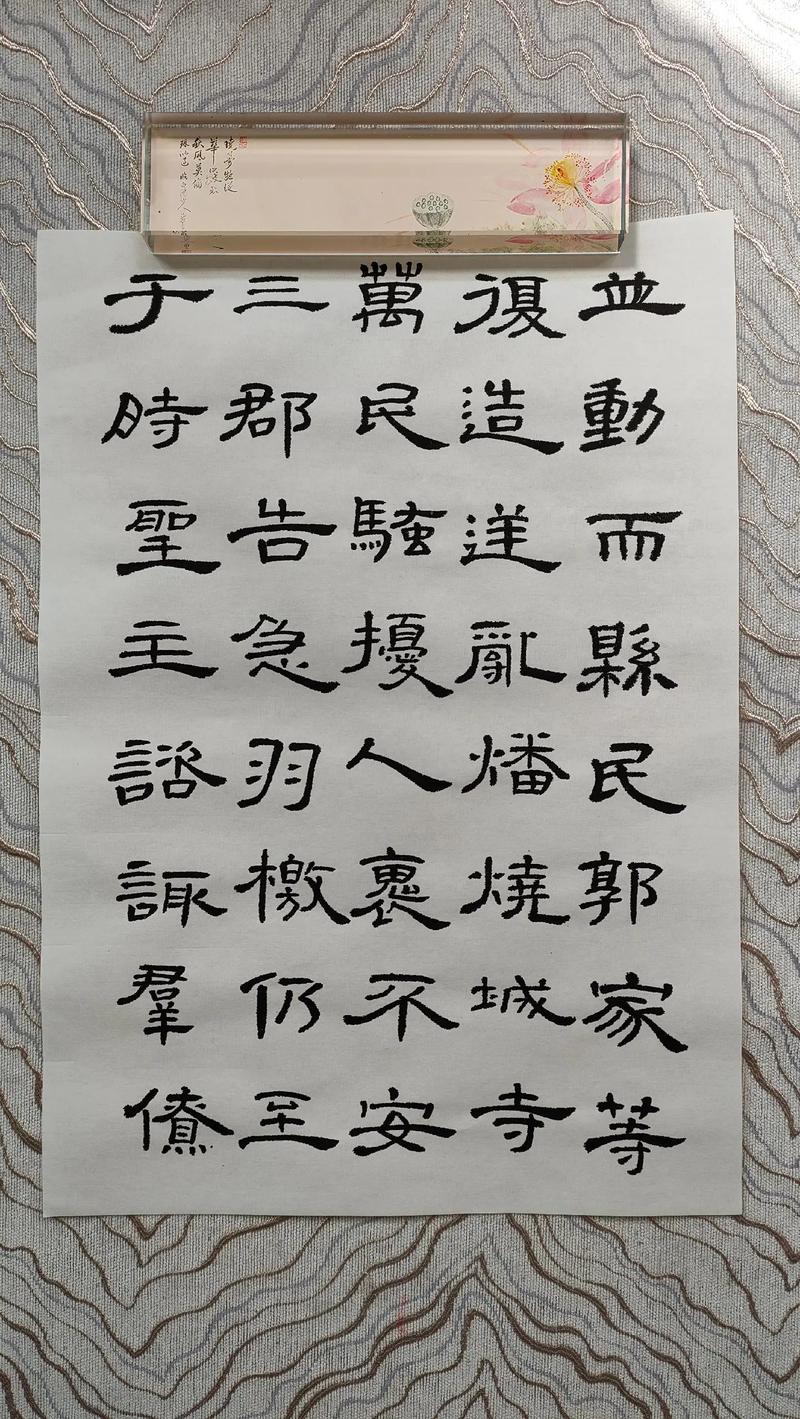 並動而縣民郭家等
復造逆亂燔燒城寺
萬民騷擾人褱不安
三郡告急羽檄仍至
于時聖主諮諏羣僚